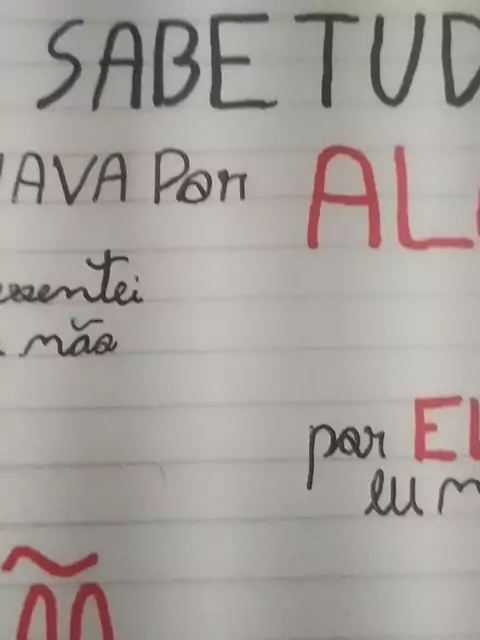 SABE TUD
AVA Por AL
sentei
não
por EL
eu m